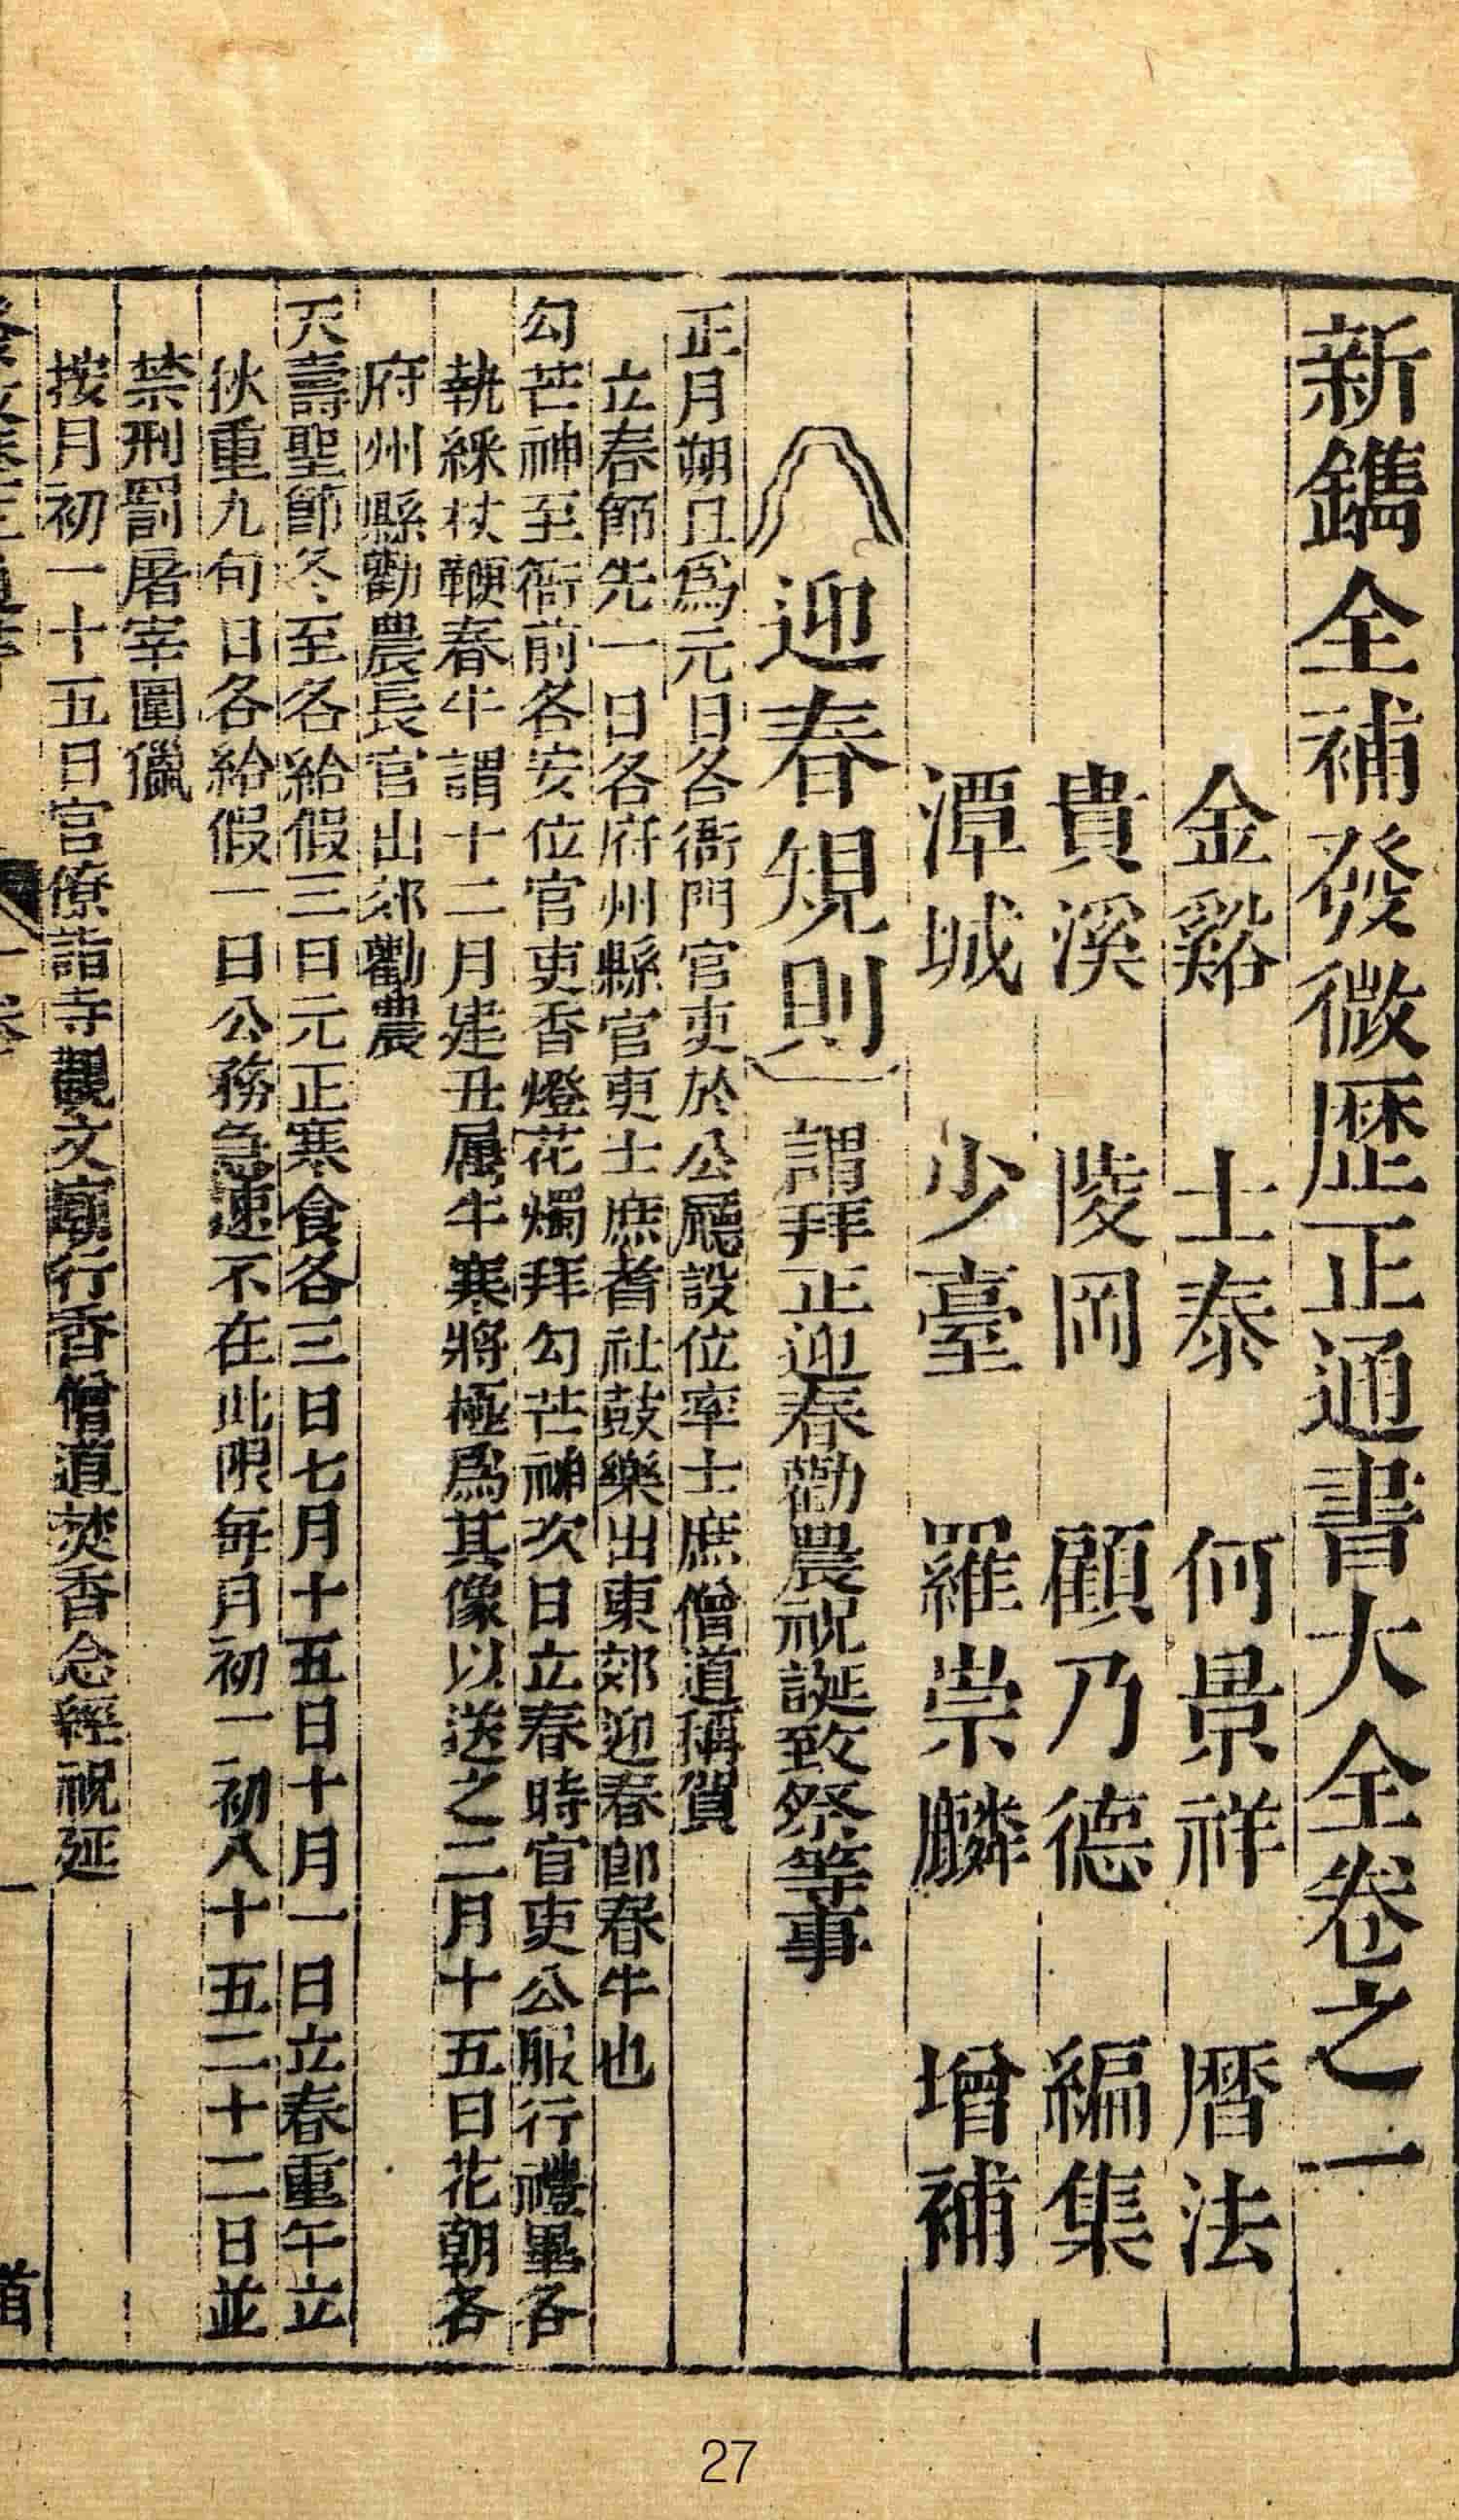 新鐫全補發微歷正通書大全卷之一
金谿 士泰 何景祥 曆法
貴溪 陵岡 顧乃德 編集
潭城 少臺 羅崇麟 增補
迎春規則 謂拜正迎春勸農祝誕致祭等事
正月朔旦為元日各衙門官吏於公廳設位率士庶僧道稱賀
立春節先一日各府州縣官吏士庶耆社鼓樂出東郊迎春即春牛也
勾芒神至衙前各安位官吏香燈花燭拜勾芒神次日立春時官吏公服行禮畢各
執綵杖鞭春牛謂十二月建丑属牛寒將極爲其像以送之二月十五日花朝各
府州縣勸農長官出郊勸農
天壽聖節冬至各給假三日元正寒食各三日七月十五日十月一日立春重午立
秋重九旬日各給假一日公務急速不在此限每月初一初八十五二十二日並
禁刑罰屠宰圍獵
按月初一十五日官僚詣寺觀文廟行香僧道焚香念經祝延
一
首
27